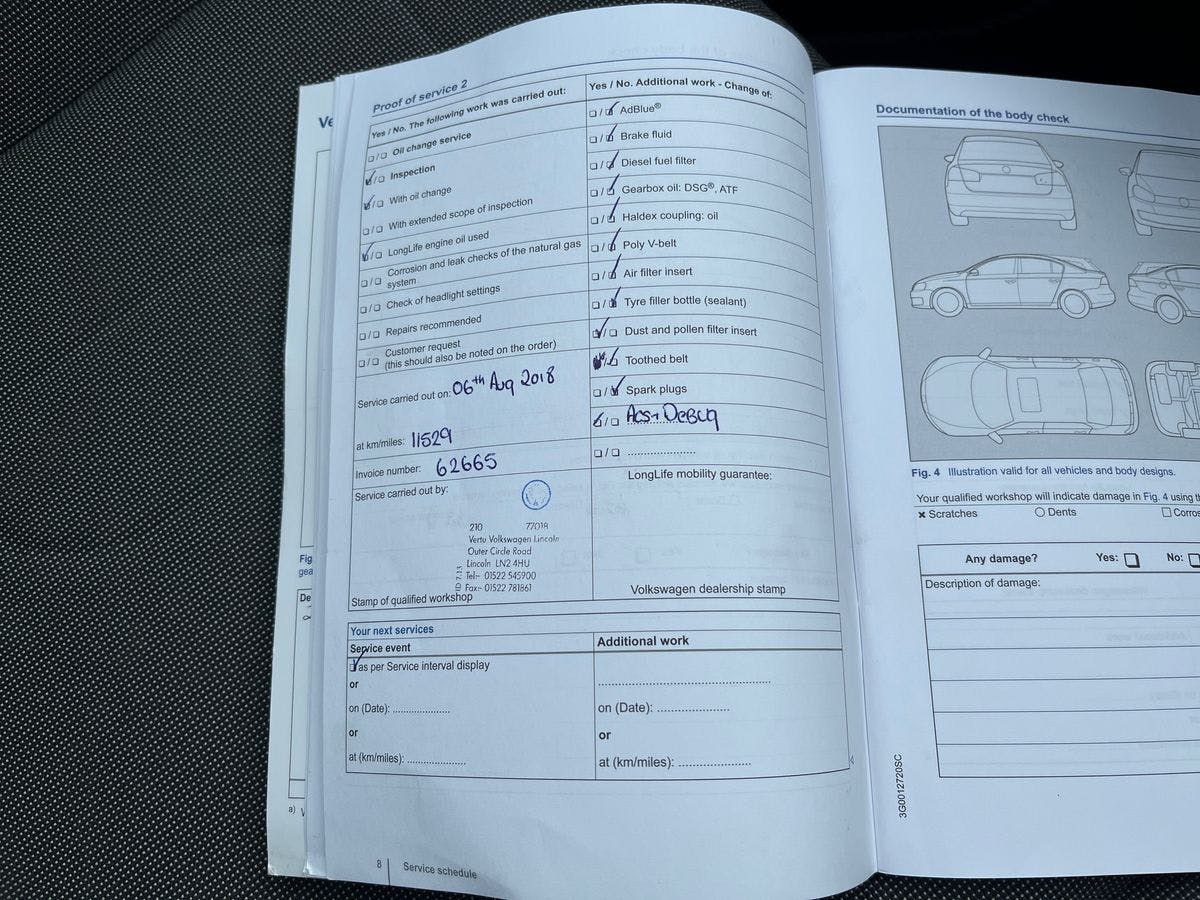 Ve
Proof of service 2
Yes / No. The following work was carried out:
Oil change service
Inspection
With oil change
With extended scope of inspection
LongLife engine oil used
Corrosion and leak checks of the natural gas
system
Check of headlight settings
Repairs recommended
Customer request
(this should also be noted on the order)
Service carried out on: 06th Aug 2018
at km/miles: 11529
Invoice number: 62665
Service carried out by:
210 77018
Vertu Volkswagen Lincoln
Outer Circle Road
Lincoln LN2 4HU
Tel:- 01522 545900
Fax:- 01522 781861
ID 7.13
Stamp of qualified workshop
Yes / No. Additional work - Change of:
AdBlue®
Brake fluid
Diesel fuel filter
Gearbox oil: DSG®, ATF
Haldex coupling: oil
Poly V-belt
Air filter insert
Tyre filler bottle (sealant)
Dust and pollen filter insert
Toothed belt
Spark plugs
DeBug
....................
LongLife mobility guarantee:
Volkswagen dealership stamp
Your next services
Service event
as per Service interval display
or
on (Date): ....................
or
at (km/miles): ....................
Additional work
..................................................
on (Date): ....................
or
at (km/miles): ....................
8 Service schedule
Fig
gea
De
a) V
Documentation of the body check
Fig. 4 Illustration valid for all vehicles and body designs.
Your qualified workshop will indicate damage in Fig. 4 using th
× Scratches O Dents ☐ Corros
Any damage? Yes: ☐ No: ☐
Description of damage:
3G0012720SC